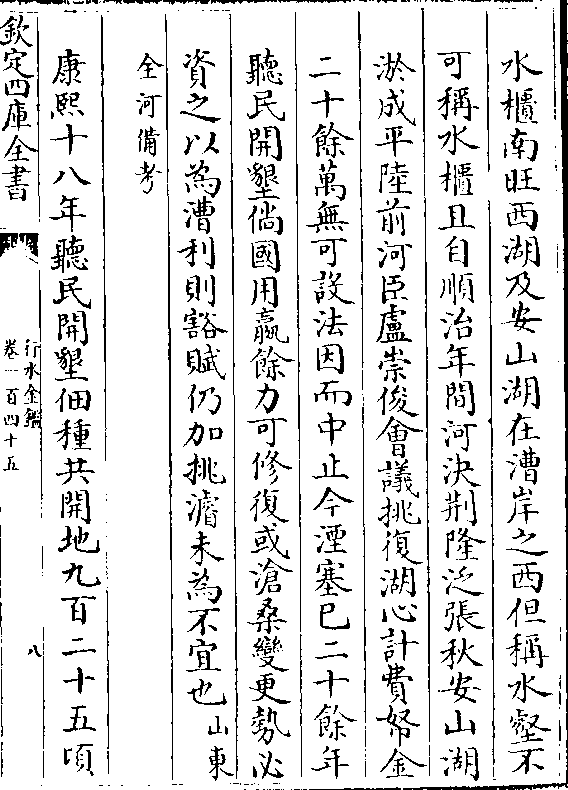 水櫃南旺西湖及安山湖在漕岸之西但稱水壑不
可稱水櫃且自順治年間河決荆隆泛張秋安山湖
淤成平陸前河臣盧崇俊會議挑復湖心計費帑金
二十餘萬無可設法因而中止今湮塞已二十餘年
聽民開墾倘國用贏餘力可修復或滄桑變更勢必
資之以為漕利則豁賦仍加挑濬未為不宜也山東
全河備考
康熙十八年聽民開墾佃種共開地九百二十五頃
欽定四庫全書
行水金鑑
卷一百四十五
八